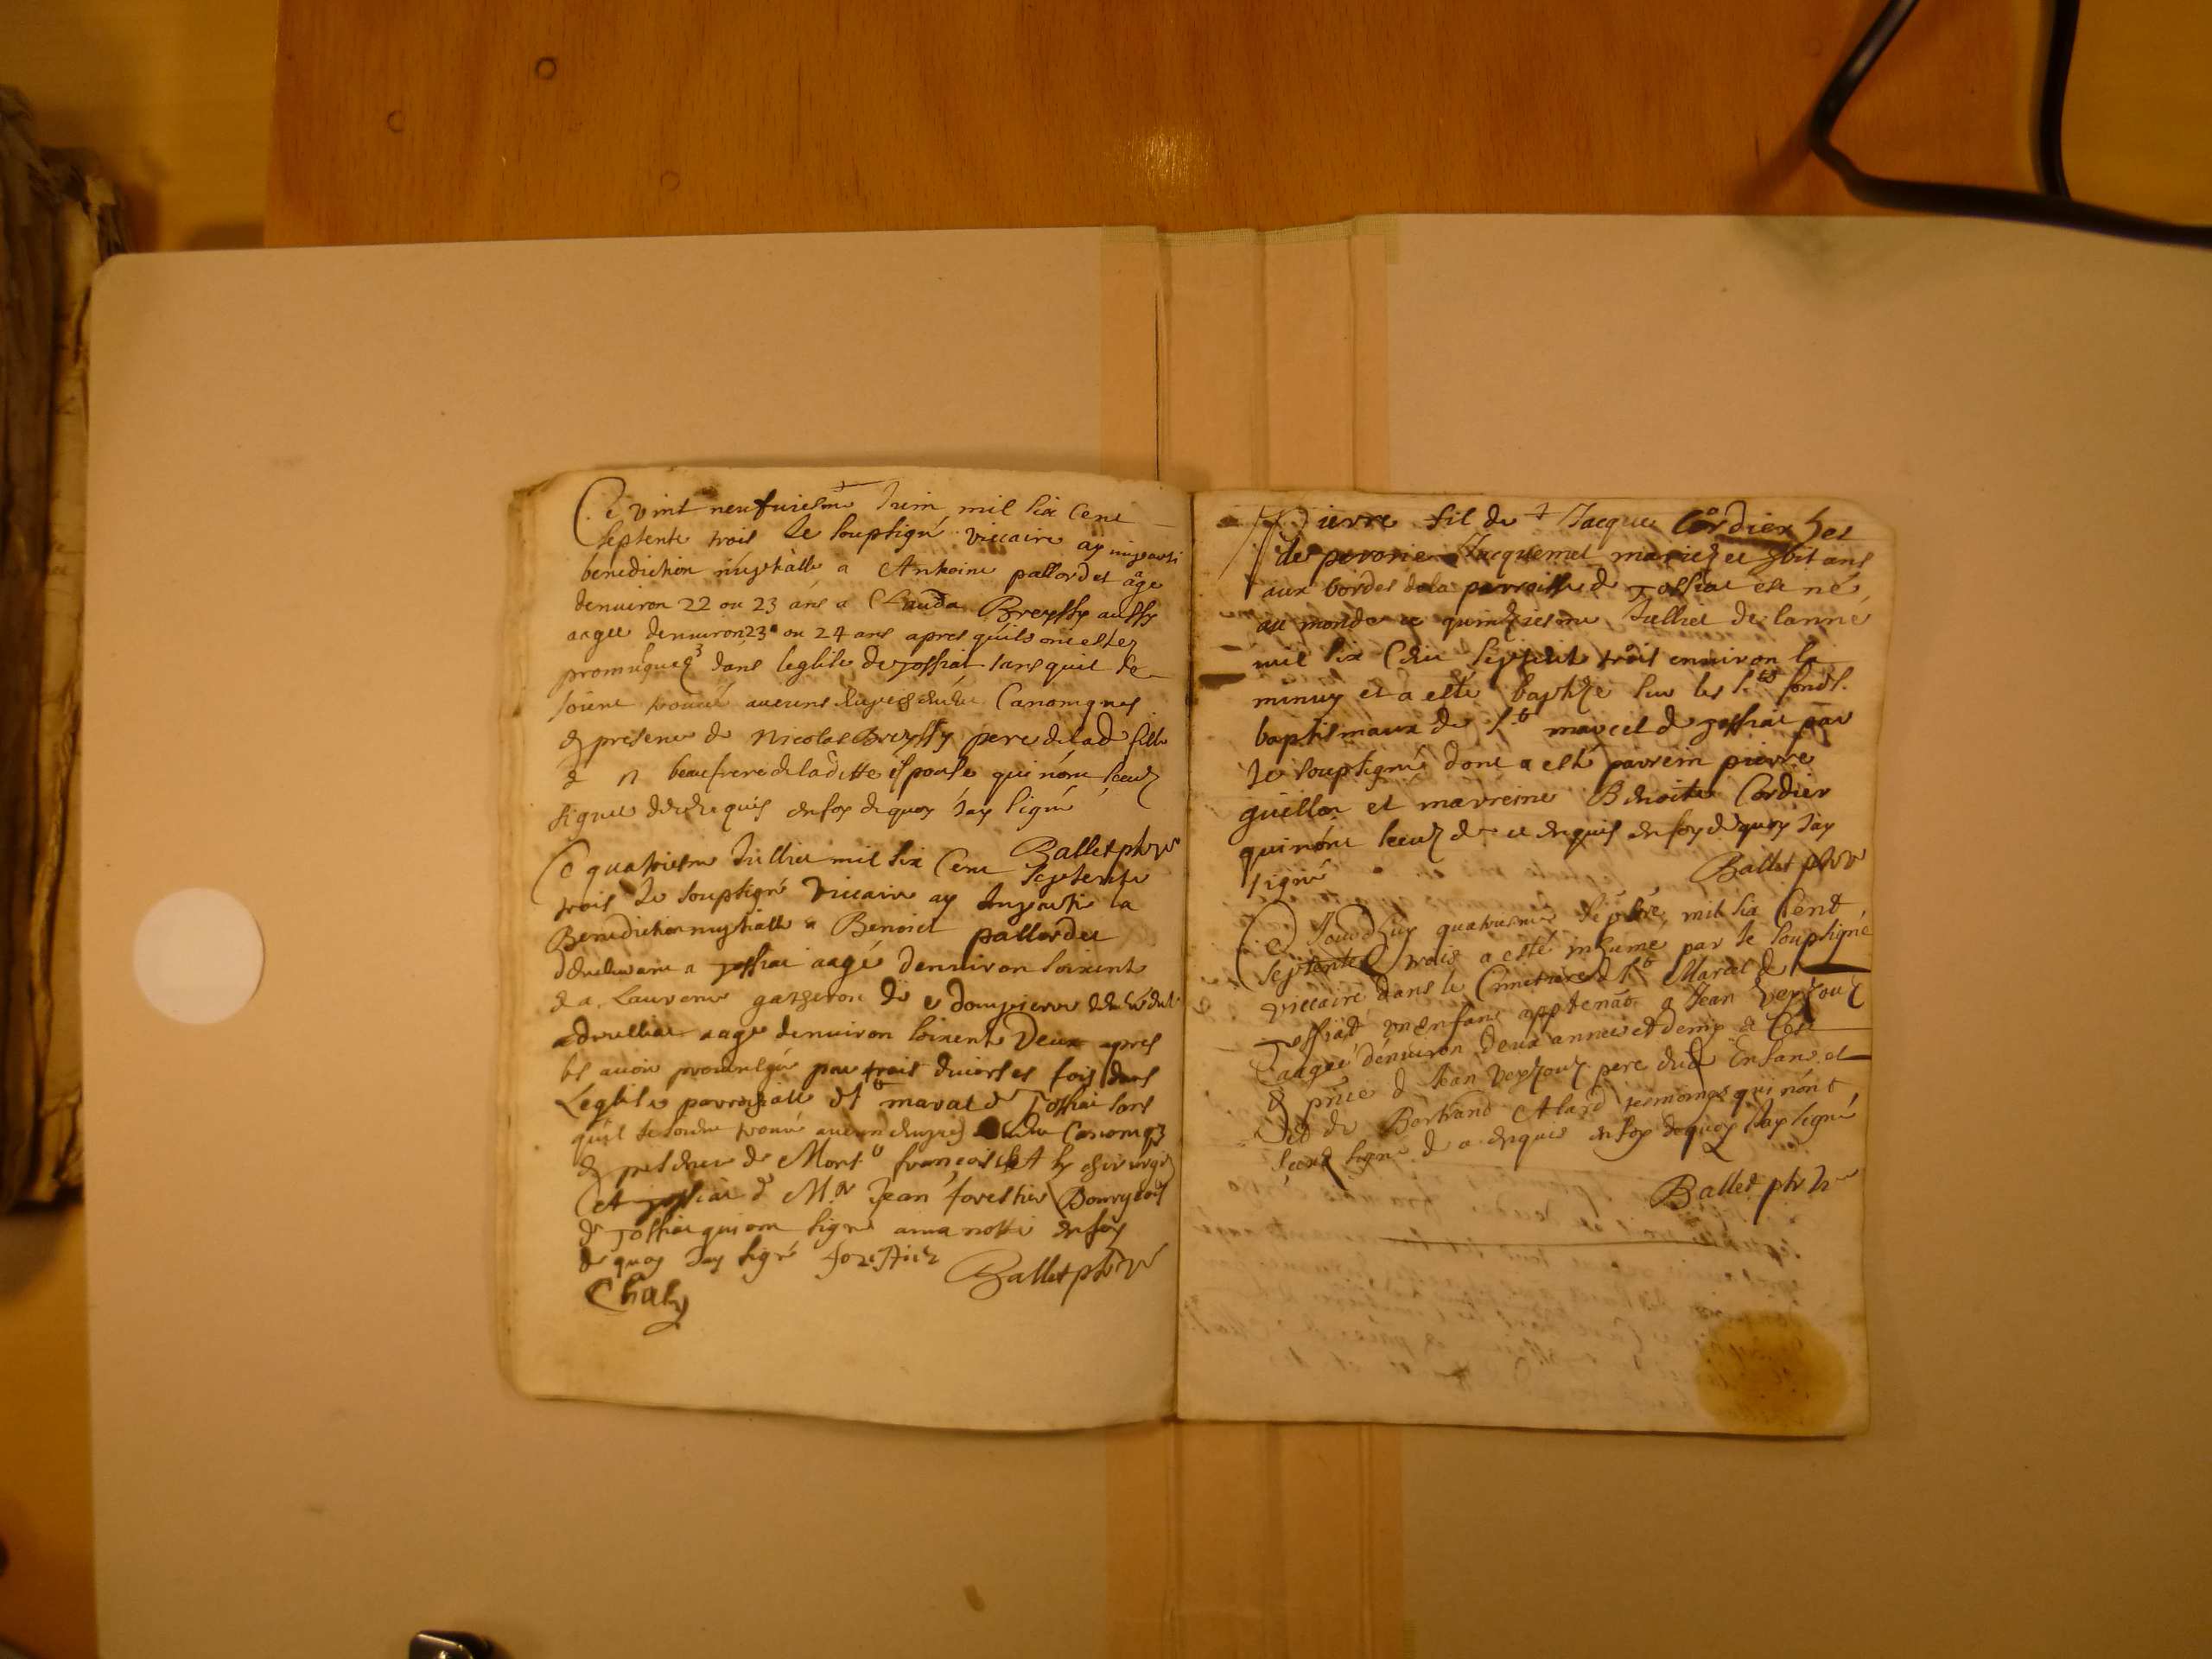 Ce vint neufviesme Juin mil six Cent
septente trois Je soupsigné viccaire ay imparti
benediction nuptialle a Antoine pallordet age
denuiron 22 ou 23 ans a Clauda Breyssy aussy
aagee denuiron 23 ou 24 ans apres quils ont estez
dans leglise de Jossiat sans quil se
soient trouué aucuns Canoniques
presence de Nicolas Breyssy pere de lad fille
& n beaufrere de laditte espouse qui nont sceuz
signer de ce requis en foy de quoy Jay signé
Ballet pbre
Ce quatriesme Juilliet mil six Cent septente
trois Je soupsigné Viccaire ay Imparti la
Benediction nuptialle a Benoict pallordet
demeurant a Jossiat aagé denuiron soixente
& a Laurence de dompierre
aage denuiron soixente Deux apres
les auoir promulgué par trois diuerses fois dans
Leglise parroissialle de St marcel de Jossiat sans
quil se soit trouué aucun Canoniq3
presence de Monsr francois Chaly chirurgien
a Jossiat & Mr Jean forestier Bourgeois
de Jossiat qui ont signé a ma notte en foy
de quoy Jay signé forestier
Ballet pbre
Chaly
Pierre fil de Jacques Cordier et
de peronne Jacquemet mariez et hbitans
aux bordes de la parroisse de Jossiat est né
au monde ce quinziesme Juilliet de lanné
mil six Cent septente trois enuiron la
minuy et a esté baptize sur les Sts fonds
baptismaux de St marcel de Jossiat par
Je soupsigné dont a esté parrein pierre
guillon et marreine Benoite Cordier
qui nont sceuz de ce enquis en foy de quoy Jay
signé
Ballet pbre
Ce Jourdhuy quatriesme sepbre mil six Cent
septente trois a esté inhumé par Je soupsigné
viccaire dans le Cimetiere de St Marcel de
Jossiat un enfant apptenat a Jean Veyzouz
aagée denuiron deux annees et demy
pnce de Jean Veyzouz pere dud Enfant et
de Bertrand Alard tesmoings qui nont
sceuz signé de ce enquis en foy de quoy Jay signé
Ballet pbre